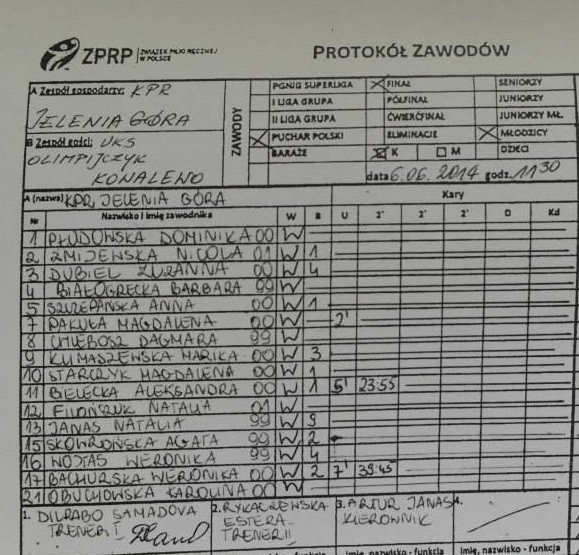 ZPRP ZWIĄZEK PIŁKI RĘCZNEJ W POLSCE
PROTOKÓŁ ZAWODÓW
A Zespół gospodarzy: KPR
JELENIA GÓRA
B Zespół gości: UKS
OLIMPIJCZYK
KONALENO
ZAWODY
PGNIG SUPERLIGA X FINAŁ SENIORZY
I LIGA GRUPA PÓŁFINAŁ JUNIORZY
II LIGA GRUPA ĆWIERĆFINAŁ JUNIORZY MŁ.
X PUCHAR POLSKI ELIMINACJE X MŁODZICY
BARAŻE X K M DZIECI
data 6.06.2014 godz. 11 30
A (nazwa) KPR JELENIA GÓRA Kary
Nr Nazwisko i imię zawodnika W B U 2' 2' 2' D Kd
1 PŁUDOWSKA DOMINIKA 00 W
2 ŻMIJEWSKA NICOLA 01 W 1
3 DUBIEL ZUZANNA 00 W 4
4 BIAŁOGRECKA BARBARA 99 W
5 SZCZEPAŃSKA ANNA 00 W 1
7 PAKUŁA MAGDALENA 00 W 2'
8 CHLEBOSZ DAGMARA 99 W
9 KLIMASZEWSKA MARIKA 00 W 3
10 STARCZYK MAGDALENA 00 W 1
11 BIELECKA ALEKSANDRA 00 W 1 5' 23:55
12 NATALIA 01 W
13 JANAS NATALIA 99 W 9
15 SKOWROŃSKA AGATA 99 W 2
16 WOJTAS WERONIKA 99 W 4
17 BACHURSKA WERONIKA 00 W 2 7' 39:45
21 OBUCHOWSKA KAROLINA 00 W
1. DILRABO SAMADOVA 2. RYKACZEWSKA 3. ARTUR JANAS 4.
TRENER I ESTERA KIEROWNIK
TRENER II
imię, nazwisko - funkcja imię, nazwisko - funkcja